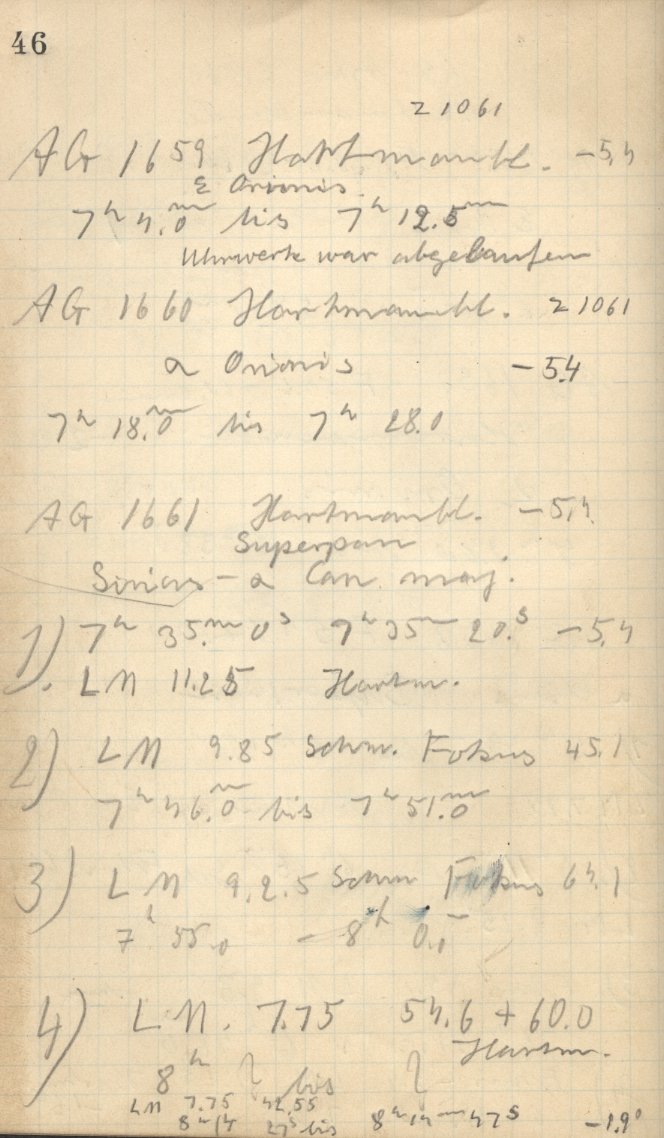 46
Z 1061
AG 1659 Hartmannbl. -5,4
ε Orionis
7h 4.0m bis 7h 12.5m
Uhrwerk war abgelaufen
AG 1660 Hartmannbl. Z 1061
α Orionis -5.4
7h 18.0m bis 7h 28.0
AG 1661 Hartmannbl. -5,4
Superpan
Sirius - α Can. maj.
1) 7h 35.m 0s 7h 35m 20.s -5,4
LM 11.25 Hartm.
2) LM 9.85 Schm. Fokus 45.1
7h 46.0m bis 7h 51.0m
3) LM 9.2.5 Schm Fokus 64.1
7h 55.0 - 8h 0.0m
4) LM. 7.75 54.6 + 60.0
Hartm.
8h ? bis ?
LM 7.75 42.55
8h 14 27s bis 8h 14m 47s -1.9°